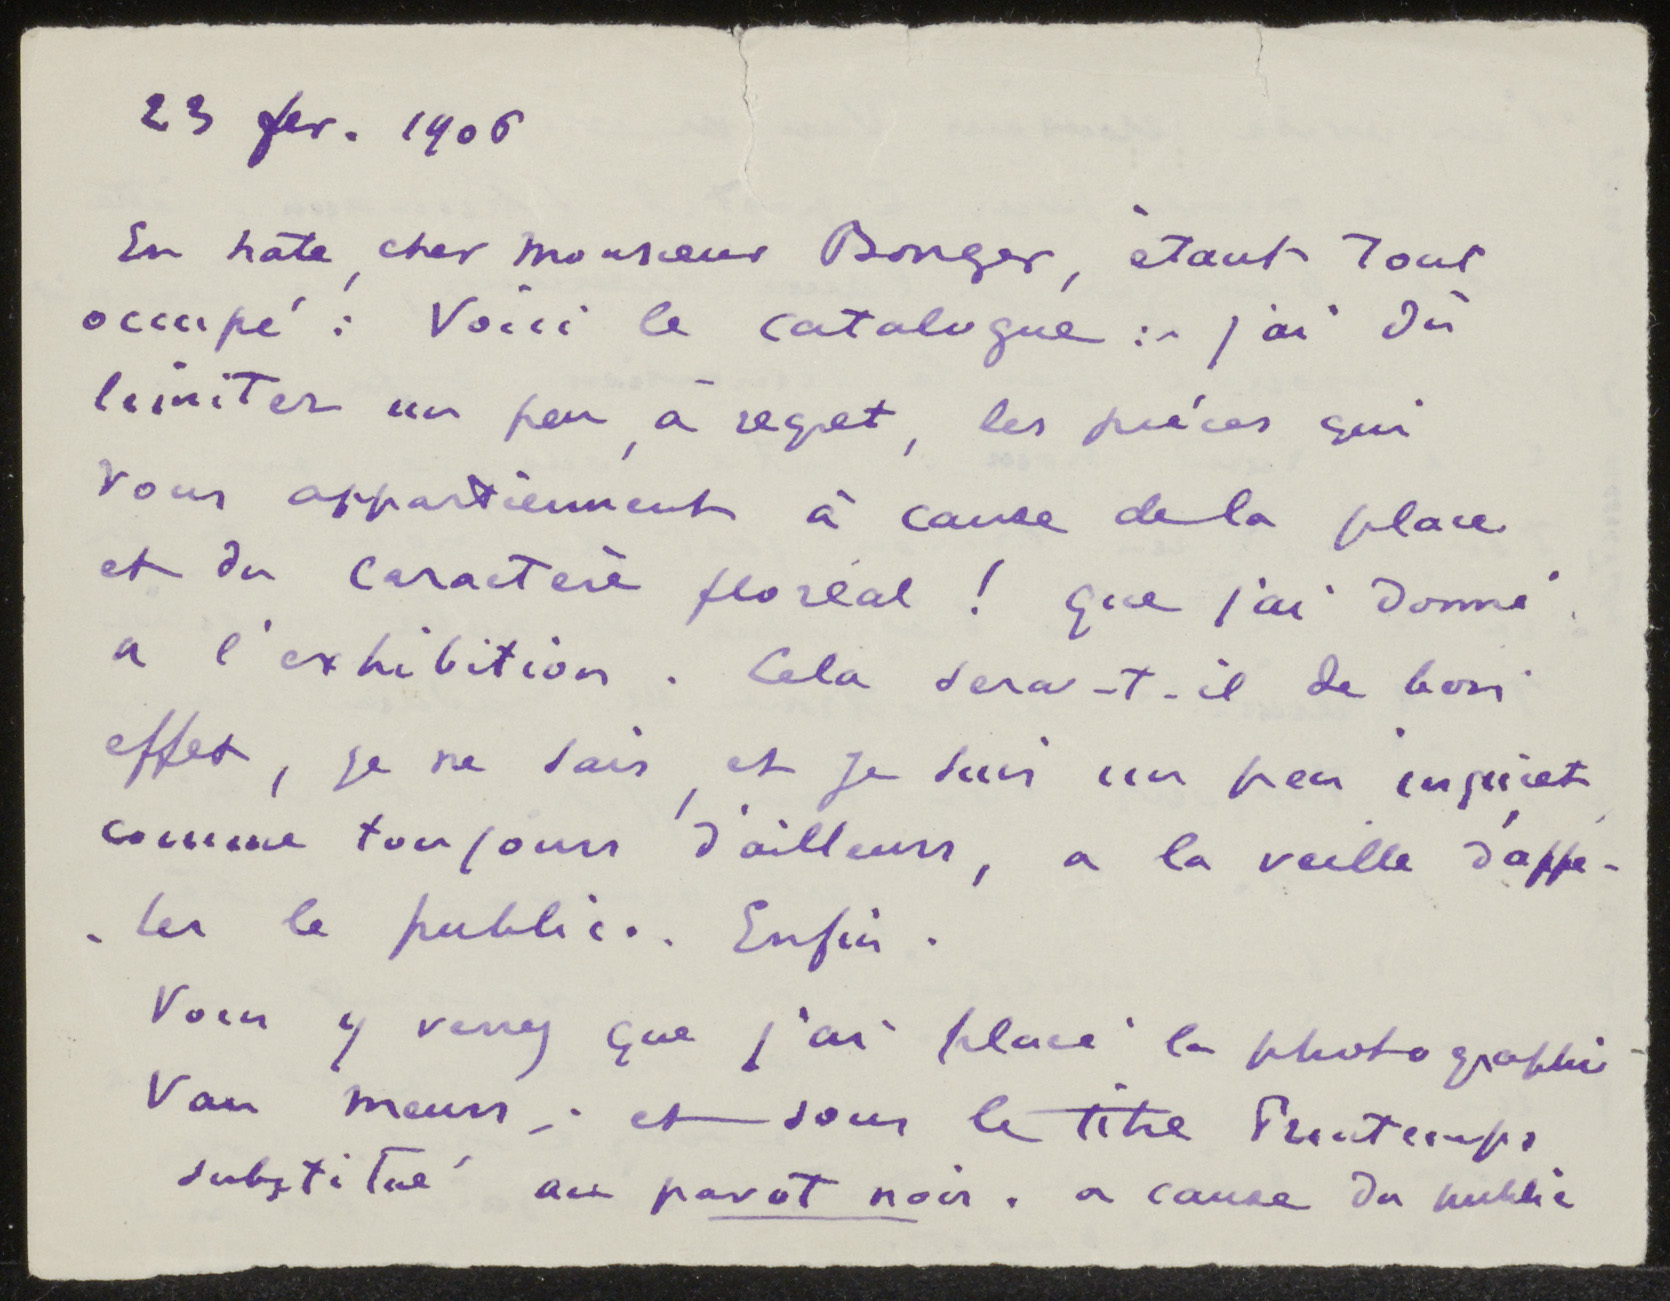 23 fev. 1906
En hâte, cher Monsieur Bonger, étant tout
occupé : Voici le catalogue :- j'ai dû
limiter un peu, à regret, les pièces qui
vous appartiennent à cause de la place
et du caractère floréal ! que j'ai donné
a l'exhibition. Cela sera-t-il de bon
effet, je ne sais, et je suis un peu inquiet,
comme toujours d'ailleurs, a la veille d'appe-
-ler le public.. Enfin.
Vous y verrez que j'ai placé la photographie
Van Meurs, . et sous le titre Printemps
substitué au pavot noir. a cause du public